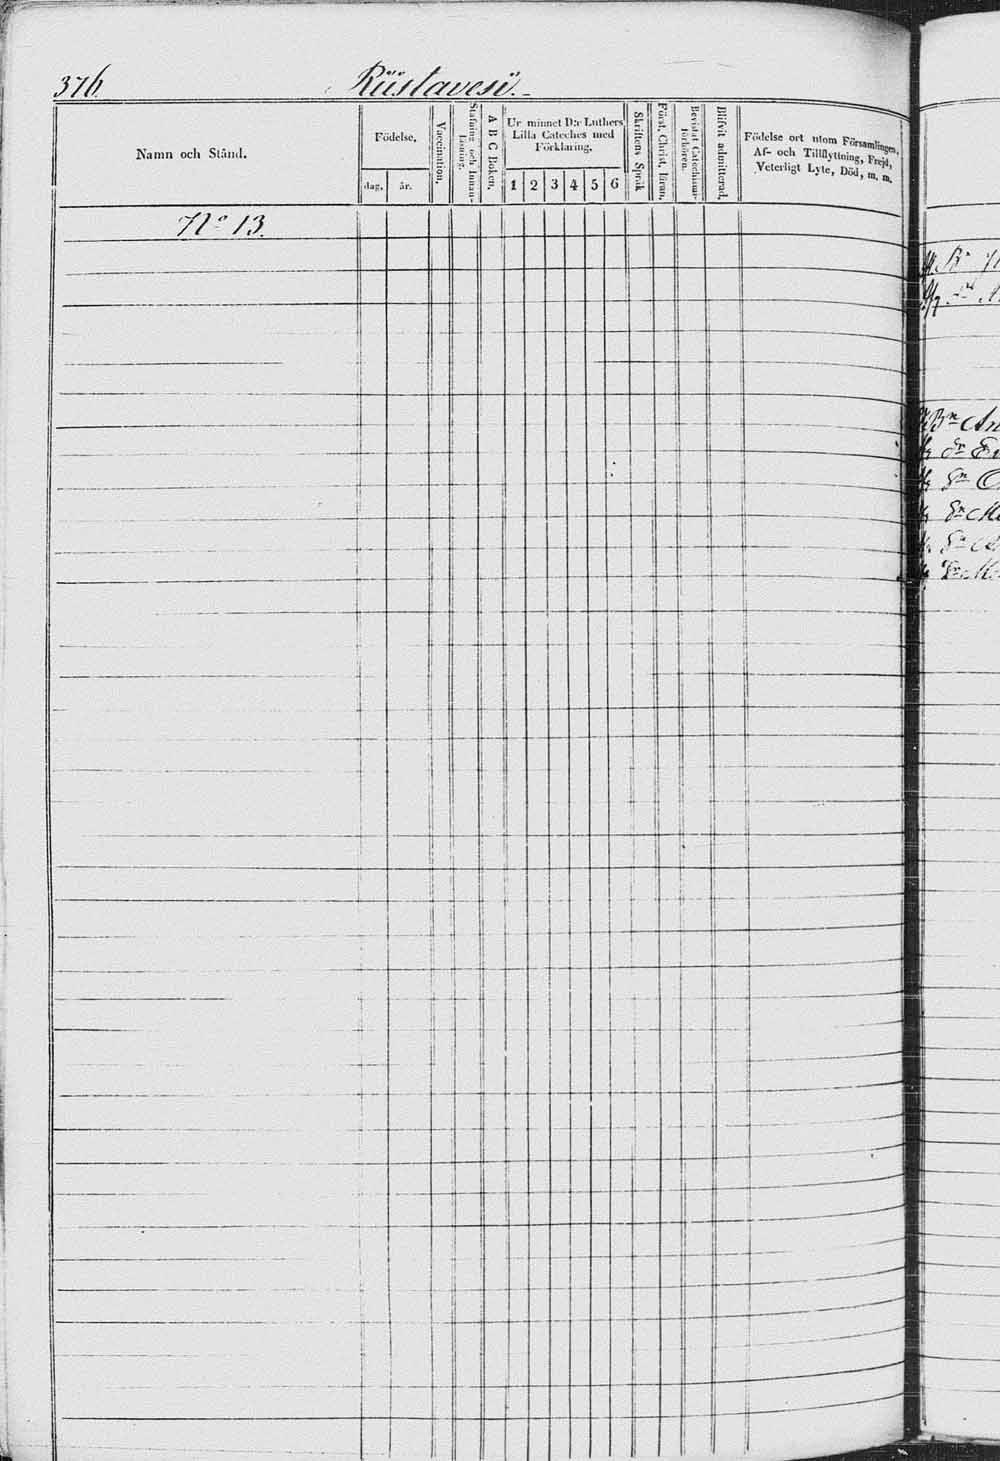 376. Riistavesi.
Namn och Stånd.
Födelse,
dag,
år.
Vaccination,
Stafning och Innan-
läsning.
A B C Boken,
Ur minnet D:r Luthers
Lilla Cateches med
Förklaring,
1 2 3 4 5 6
Skriftens Språk
Först. Christ. läran,
Bevistat Catechismi-
förhören.
Blifvit admitterad,
Födelse ort utom Församlingen,
Af- och Tillflyttning, Frejd,
Veterligt Lyte, Död, m. m.
No 13.
Bn An
dn
dn
dn
dn